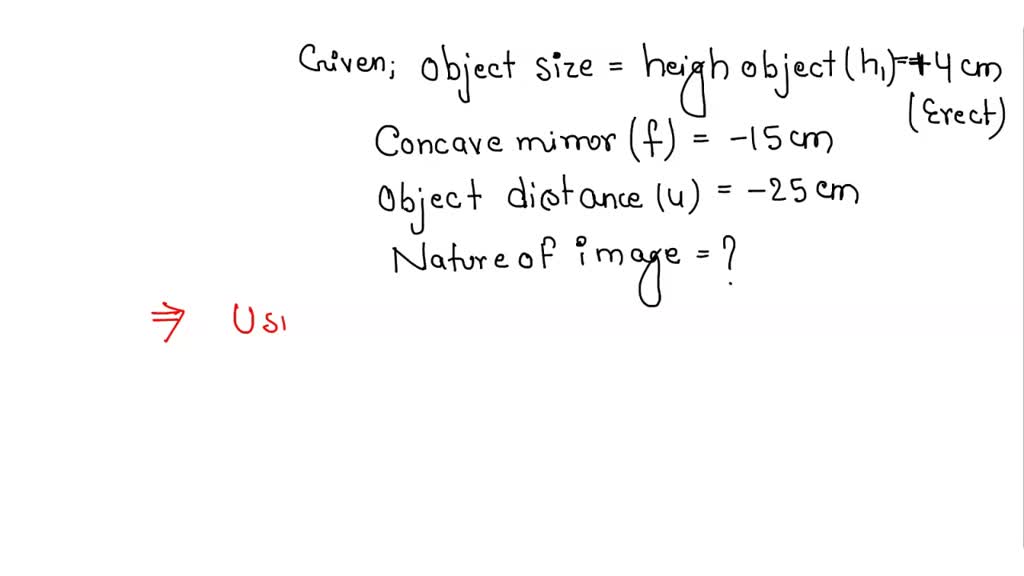 Given; Object size = heigh object (h₁) = +4 cm
(Erect)
Concave mirror (f) = -15 cm
Object distance (u) = -25 cm
Nature of image = ?
⇒ Usi